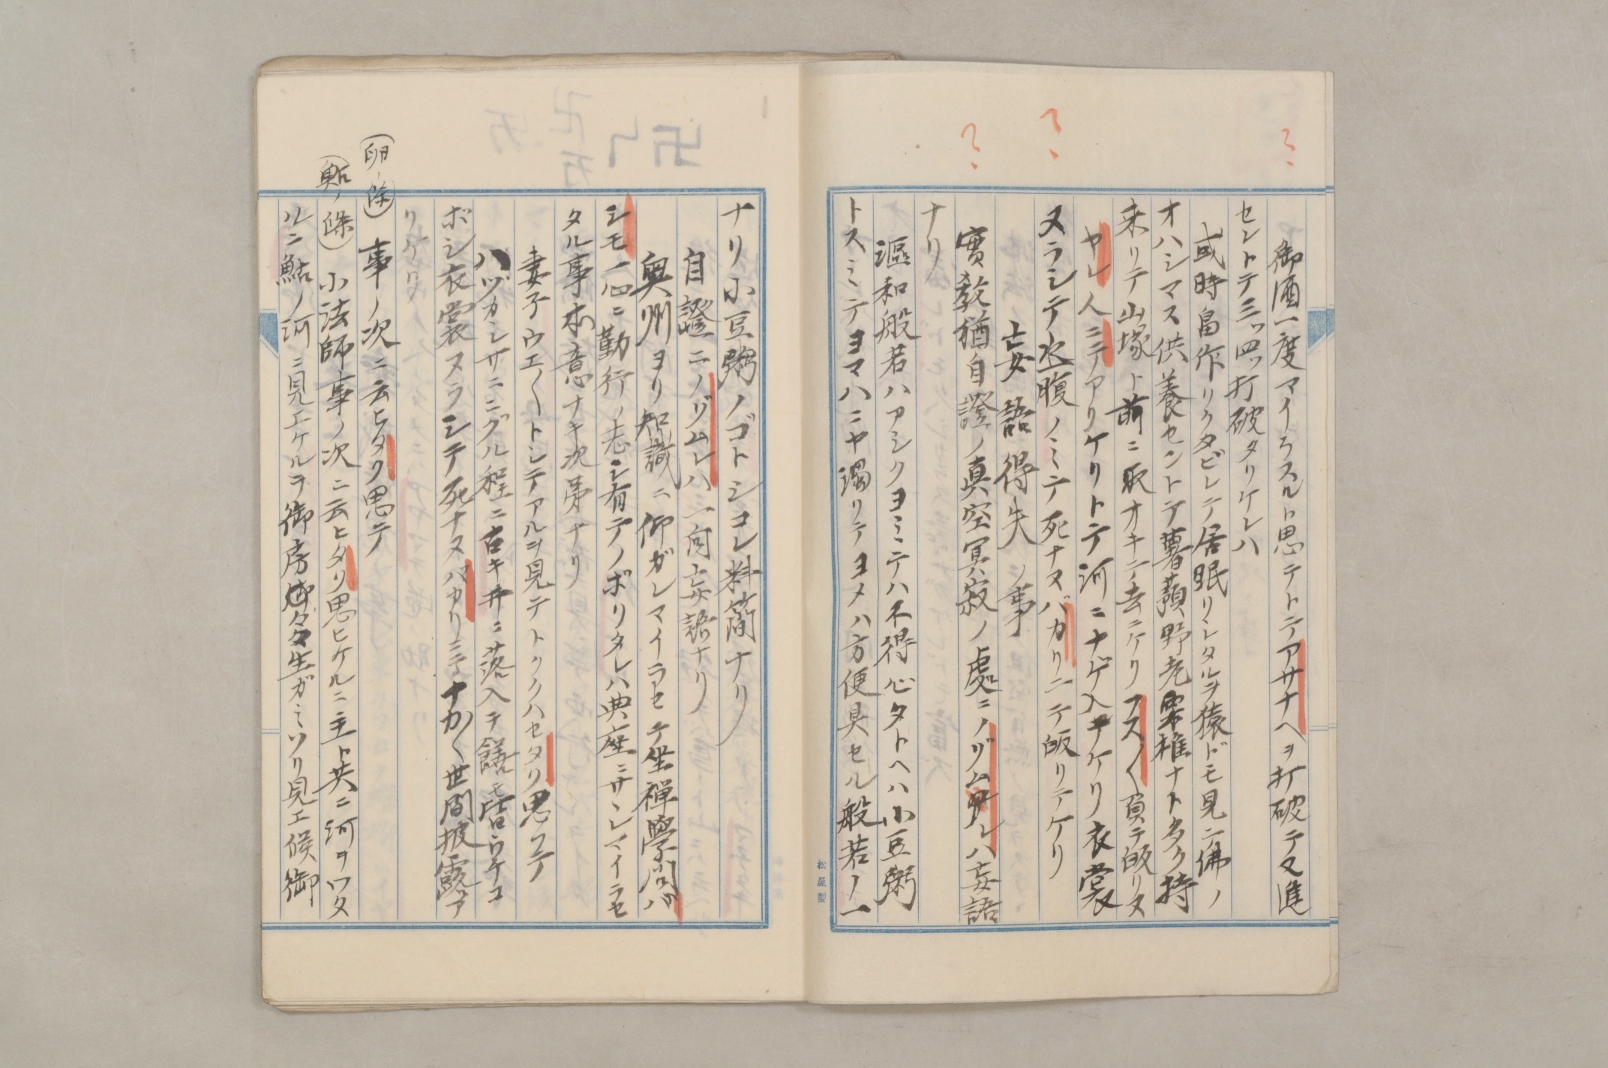 御酒一度マイラスルト思テトテアサナヘヲ打破テ又進
セントテ三ッ四ッ打破タリケレハ
或時畠作リクタビレテ居眠リシタルヲ猿ドモ見テ佛ノ
オハシマス供養セントテ薯蕷野老栗椎ナト多ク持
来リテ山塚ト前ニ取オキテ去ニケリ フスく負テ皈リヌ
ヤレ人ニテアリケリトテ河ニナゲ入ケリ衣裳
ヌラシテ水腹ノミテ死ナヌバカリニテ皈リテケリ
妄語得失ノ事
實教猶自證ノ真空冥寂ノ處ニノゾム レハ妄語
ナリ
漚和般若ハアシクヨミテハ不得心タトヘハ小豆粥
トスミテヨマハニヤ濁リテヨメハ方便具セル般若ノ一
ナリ小豆粥ノゴトシコレ料簡ナリ
自證ニノゾムレハ一向妄語ナリ
奥州ヨリ知識ニ仰ガレマイラセテ坐禅學問バ
シモ一心ニ勤行ノ志シ有テノボリタレハ典座ニサシマイラセ
タル事本意ナキ次第ナリ
妻子ウエくトシテアルヲ見テトクハセタク思フテ
ハヅカシサニニグル程ニ古キ井ニ落入テ膳モ皆ウチコ
ボシ衣裳ヌラシテ死ナヌバカリニテナカく世間披露ア
リケリ
(卵ノ條) 事ノ次ニ云ヒタク思テ
(鮎ノ條) 小法師事ノ次ニ云ヒタク思ヒケルニ主ト共ニ河ヲワタ
ルニ鮎ノ河ニ見エケルヲ御房 生ガミソリ見エ候御
松屋製